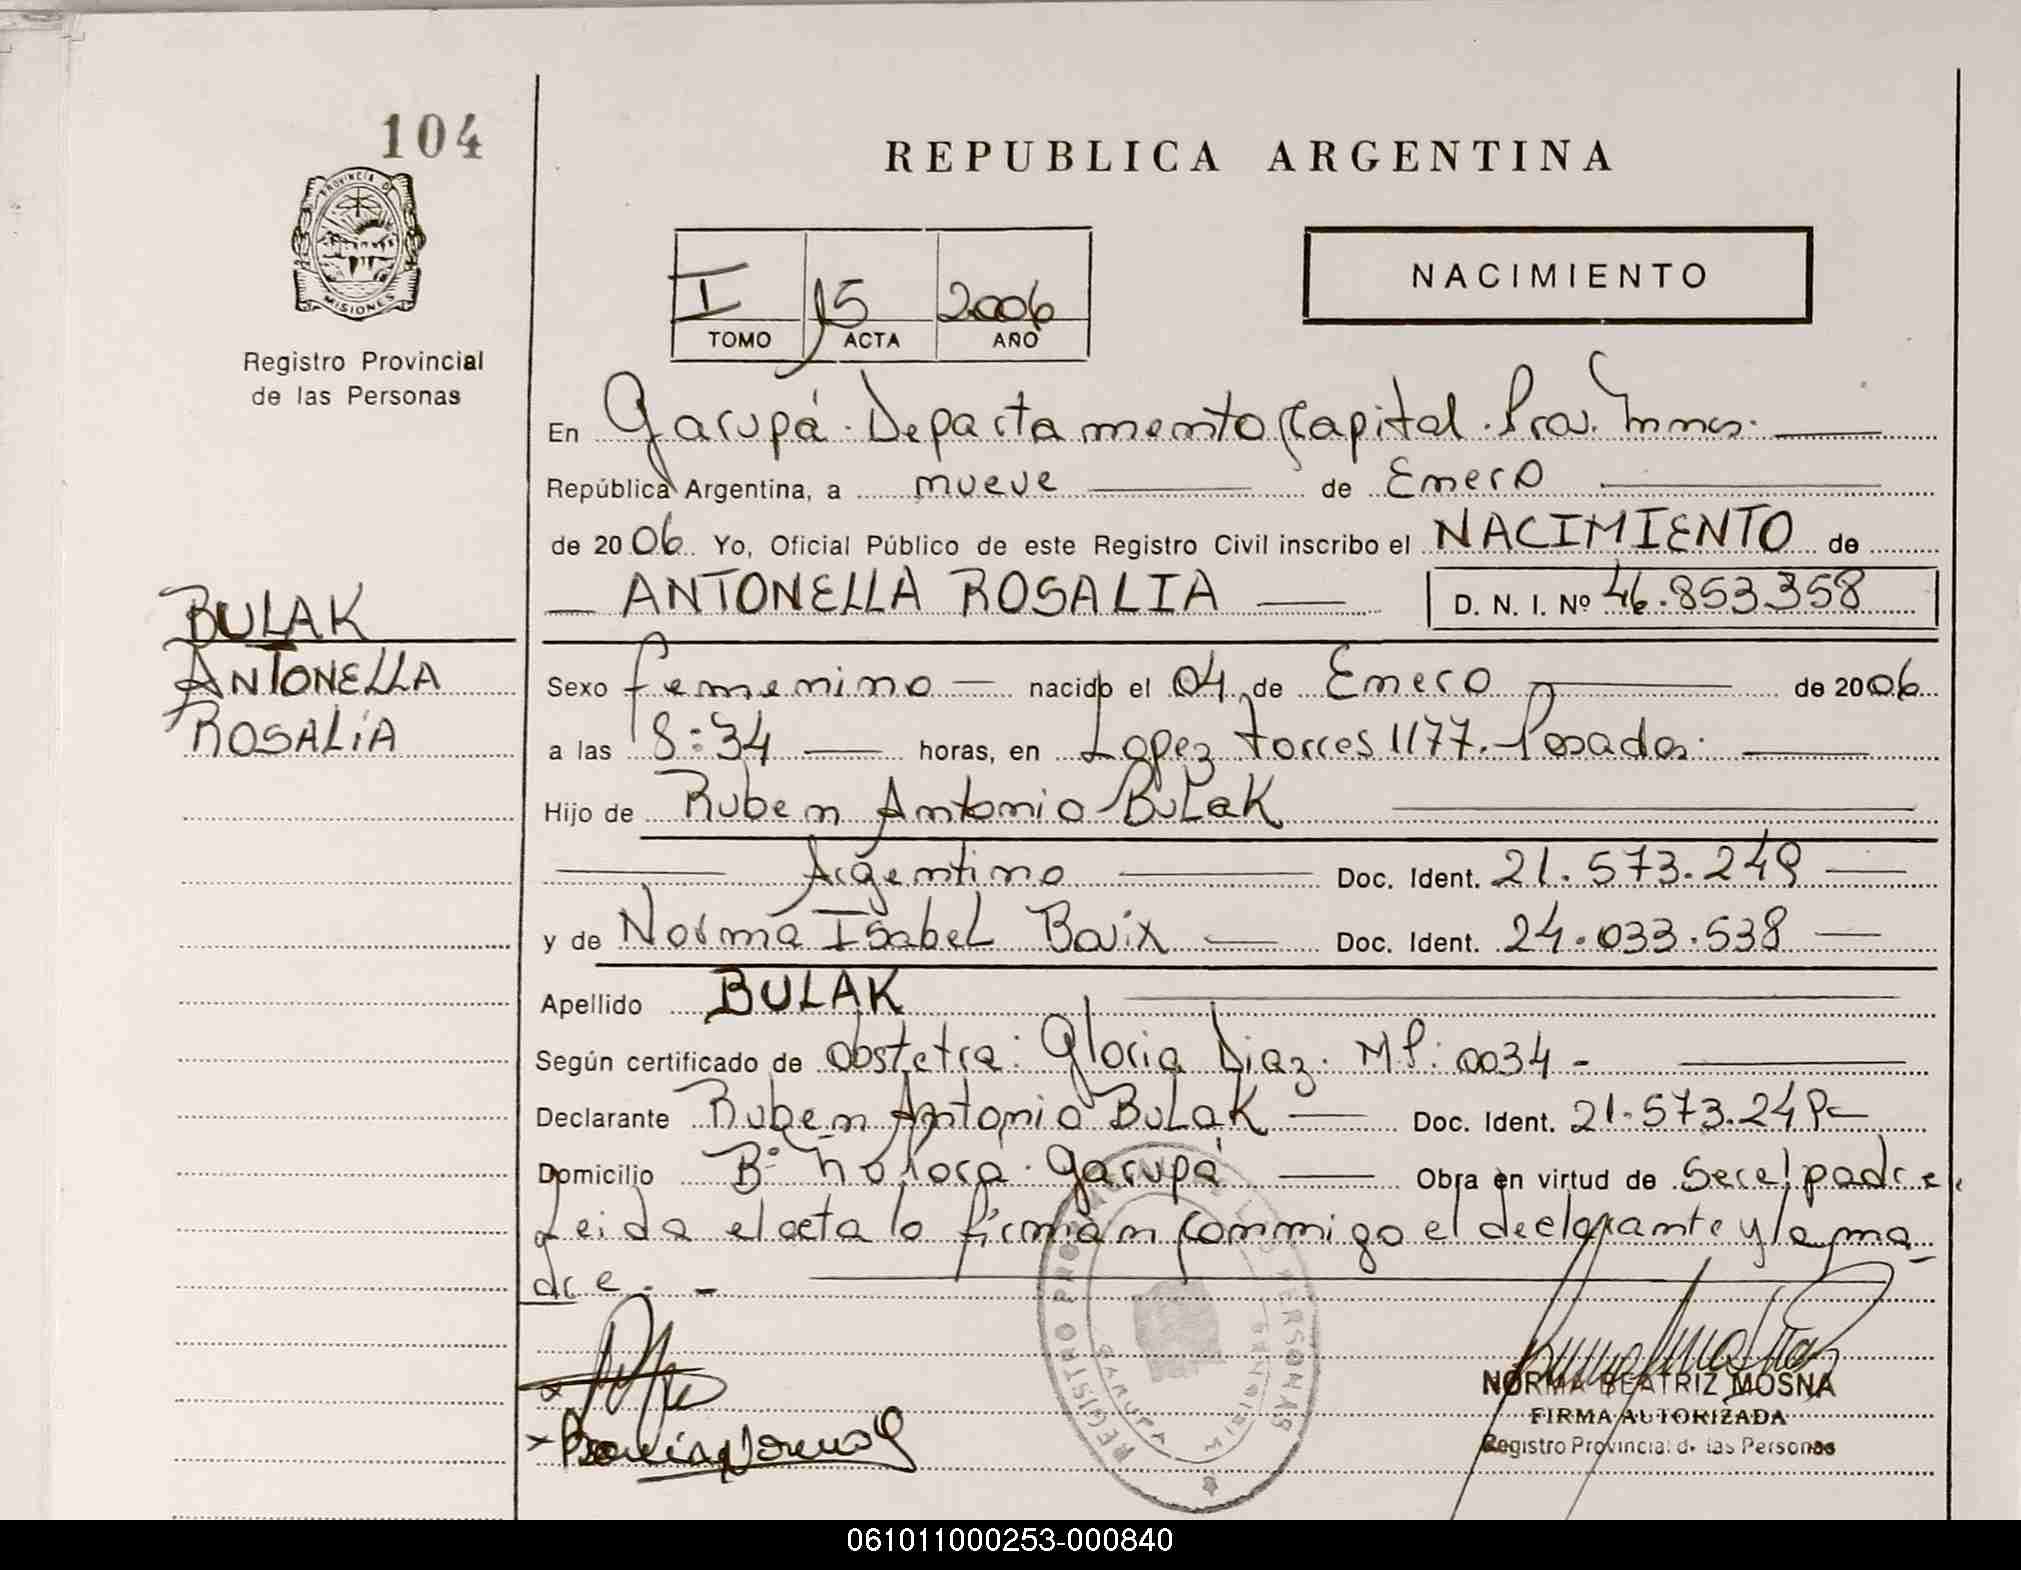 104
REPUBLICA ARGENTINA
PROVINCIA DE
MISIONES
Registro Provincial
de las Personas
NACIMIENTO
I 15 2006
TOMO ACTA AÑO
En Garupá. Departamento Capital. Prov. Mnes.
República Argentina, a nueve de Enero
de 2006 Yo, Oficial Público de este Registro Civil inscribo el NACIMIENTO de
ANTONELLA ROSALIA D. N. I. Nº 46.853.358
BULAK
ANTONELLA
ROSALIA
Sexo femenino nacido el 04 de Enero de 2006
a las 8:34 horas, en Lopez Torres 1177. Posadas.
Hijo de Ruben Antonio BULAK
Argentino Doc. Ident. 21.573.249
y de Norma Isabel Doc. Ident. 24.033.538
Apellido BULAK
Según certificado de obstetra: Gloria Diaz. MP: 0034 -
Declarante Ruben Antonio BULAK Doc. Ident. 21.573.249
Domicilio Bº Garupá Obra en virtud de ser el padre.
Leida el acta la firman conmigo el declarante y la ma-
dre. -
REGISTRO PROVINCIAL DE LAS PERSONAS
GARUPA
MISIONES
NORMA BEATRIZ MOSNA
FIRMA AUTORIZADA
Registro Provincial de las Personas
061011000253-000840